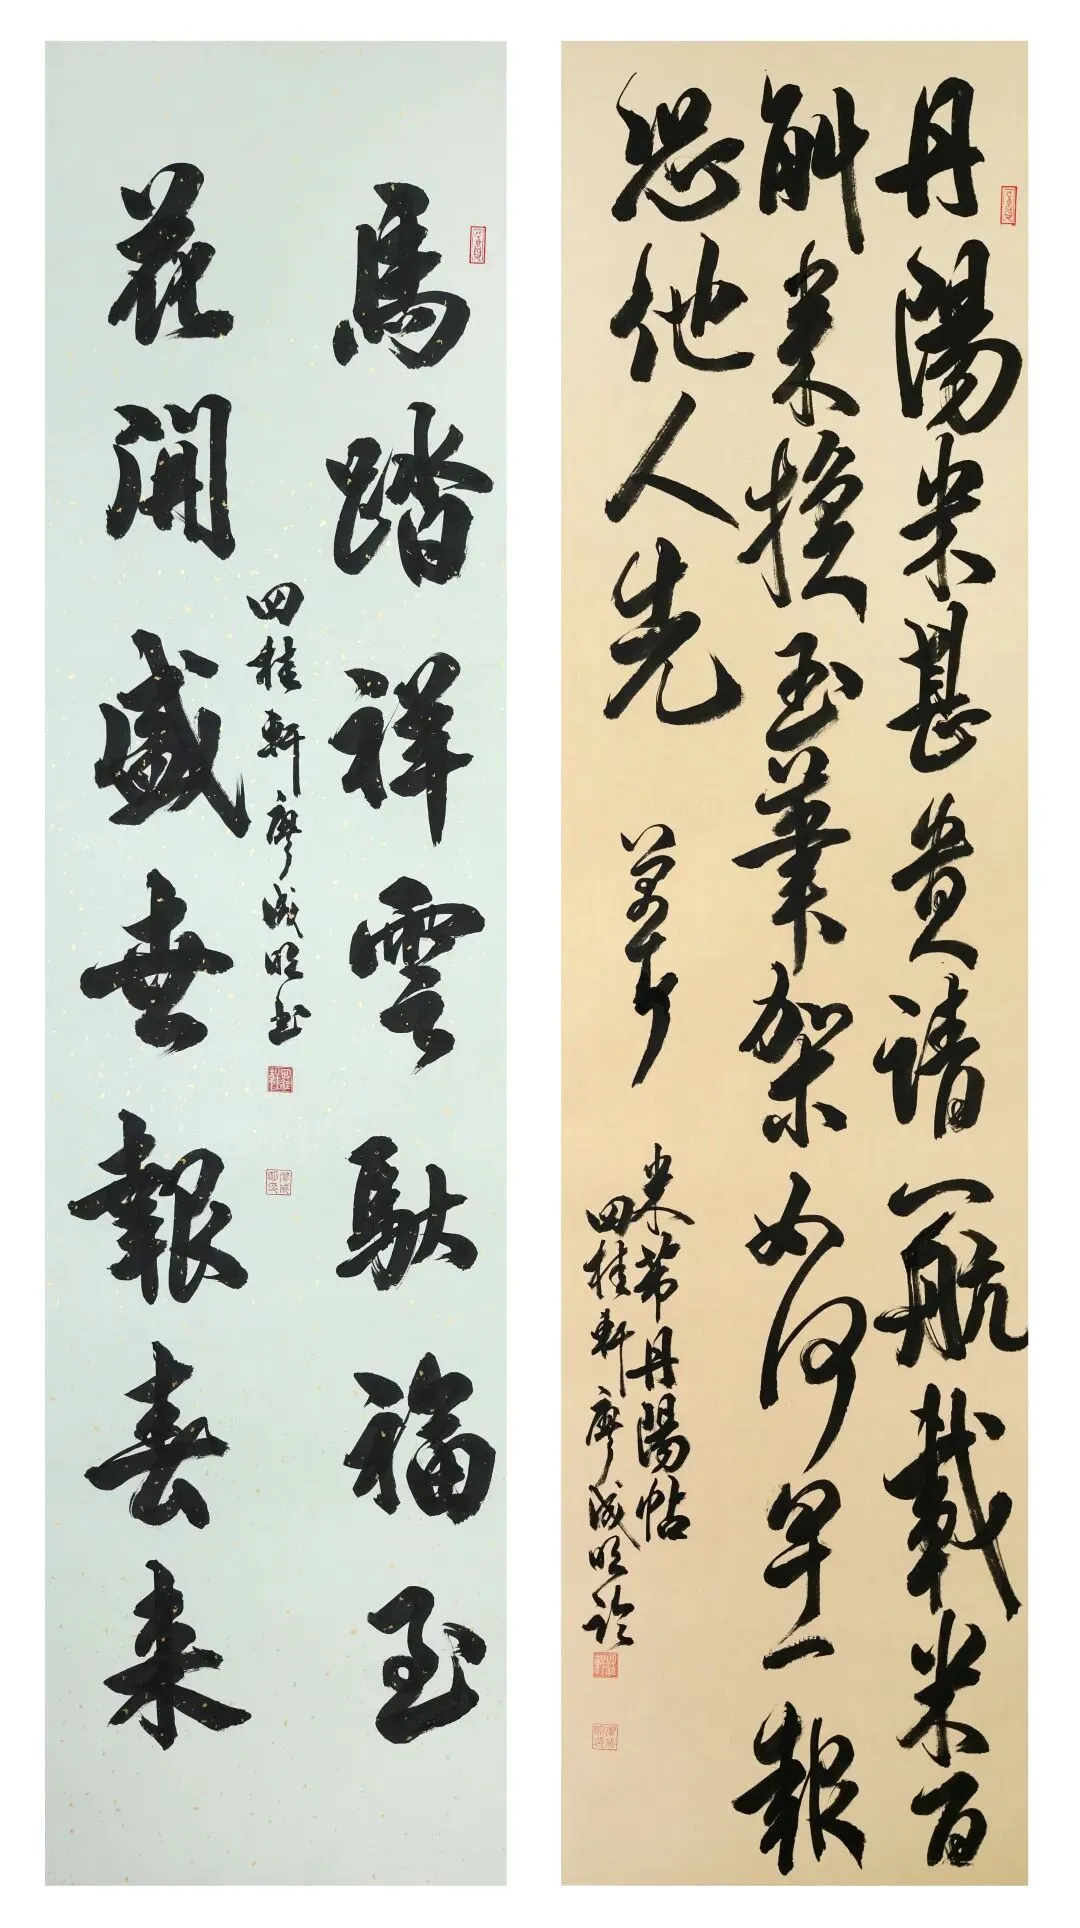 丹陽米甚貴請一航載米百
斛来換玉筆架如何早一報
恐他人先 芾頓首
米芾丹陽帖
四桂軒廖成明臨
馬踏祥雲馱福至
四桂軒廖成明书
花開盛世報春来